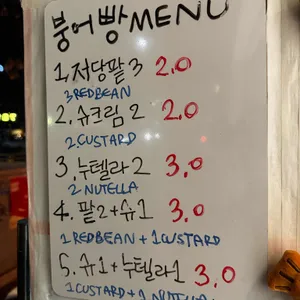 붕어빵 MENU
1. 저당팥 3 2.0
3 REDBEAN
2. 슈크림 2 2.0
2 CUSTARD
3. 누텔라 2 3.0
2 NUTELLA
4. 팥2+슈1 3.0
2 REDBEAN + 1 CUSTARD
5. 슈1+누텔라1 3.0
1 CUSTARD + 1 NUTELLA